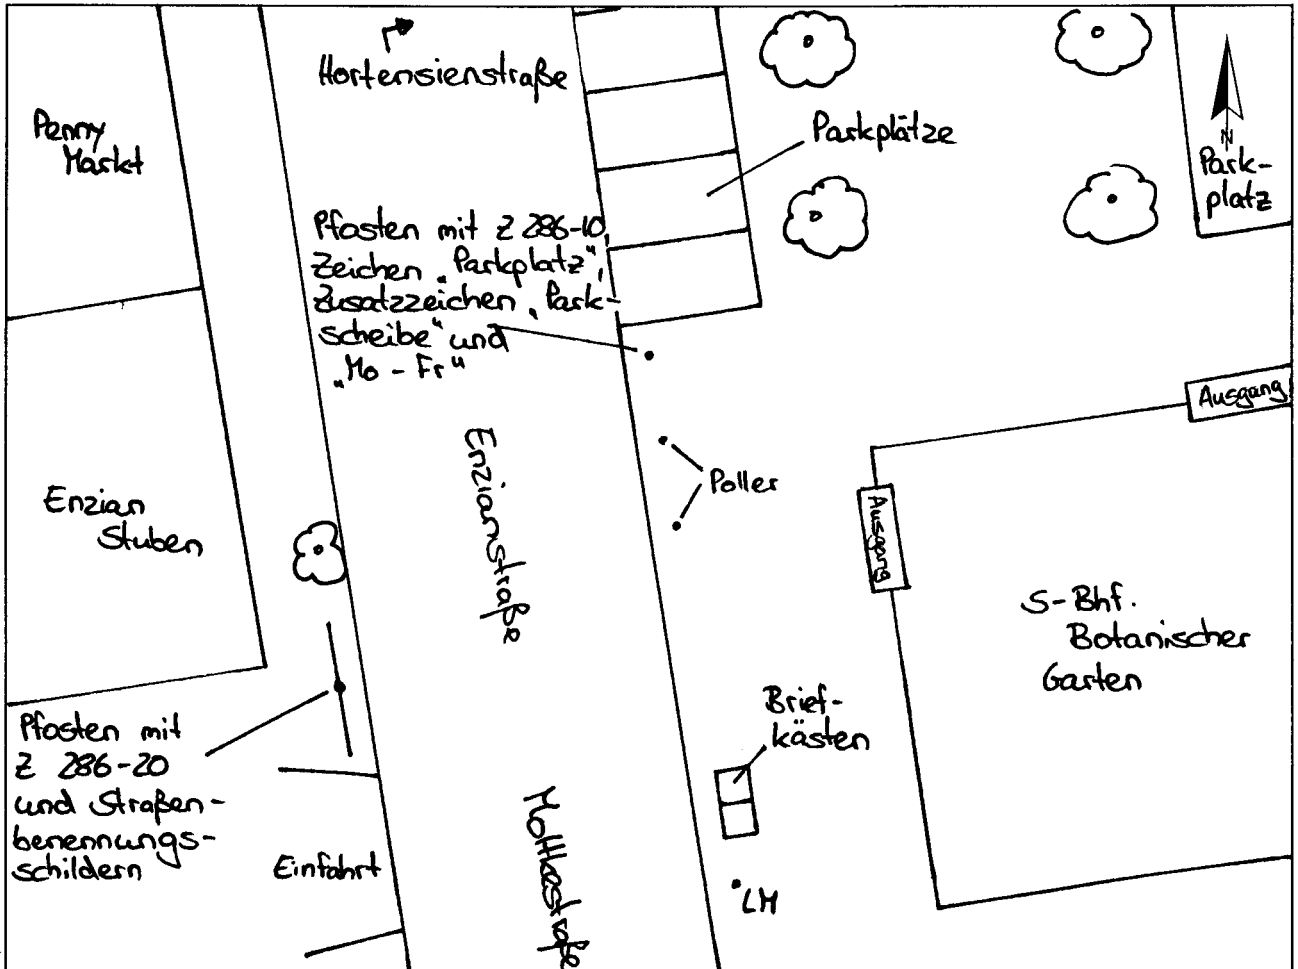 Hortensienstraße
Penny
Markt
Parkplätze
N
Park-
platz
Pfosten mit Z 286-10,
Zeichen „Parkplatz“,
Zusatzzeichen „Park-
scheibe“ und
„Mo - Fr“
Ausgang
Enzianstraße
Poller
Enzian
Stuben
Ausgang
S-Bhf.
Botanischer
Garten
Pfosten mit
Z 286-20
und Straßen-
benennungs-
schildern
Brief-
kästen
Einfahrt
Moltkestraße
LM